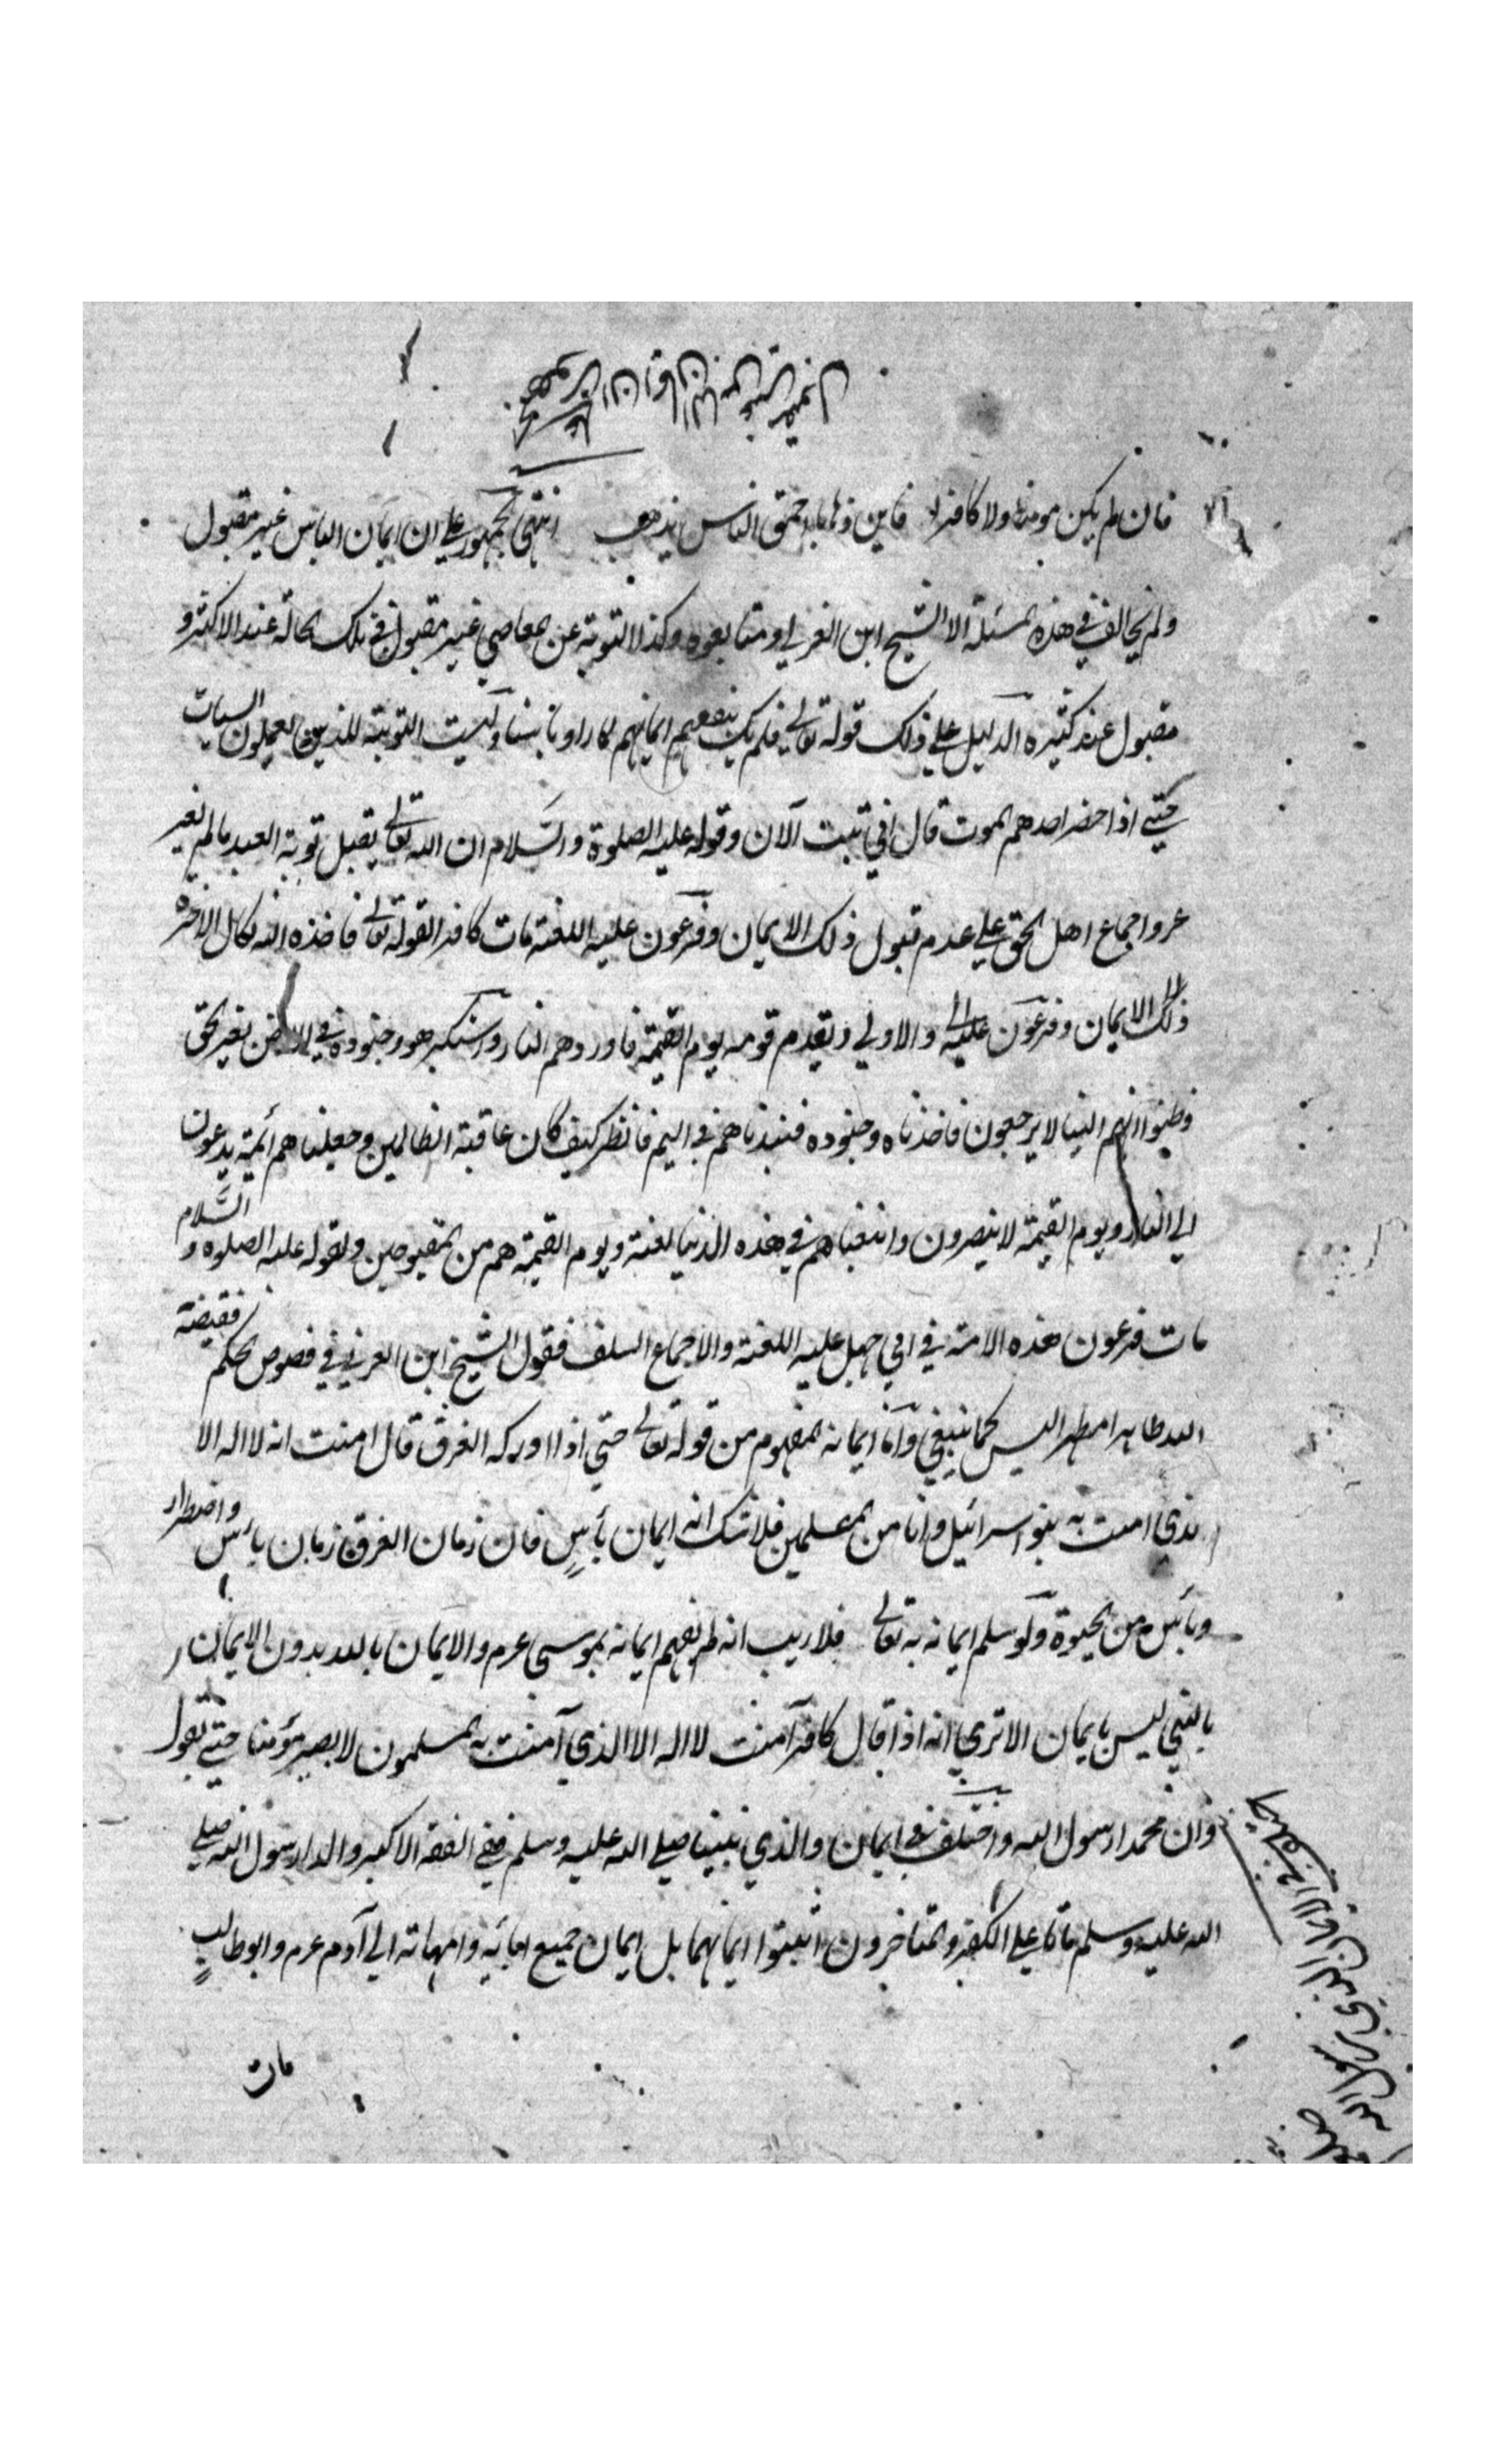 فان لم يكن مومنا ولا كافرا فاين يا احمق الناس يذهب انتهى الجمهور على ان ايمان الباس غير مقبول
ولم يخالف في هذه المسئلة الا الشيخ ابن العربي ومتابعوه وكذا التوبة عن المعاصي غير مقبول في تلك الحالة عند الاكثر و
مقبول عند كثيره الدليل على ذلك قوله تعالى فلم يك ينفعهم ايمانهم لما راوا باسنا وليست التوبة للذين يعملون السيات
حتى اذا حضر احدهم الموت قال اني تبت الآن وقوله عليه الصلوة والسلام ان الله تعالى يقبل توبة العبد مالم يغر
غر واجماع اهل الحق على عدم قبول ذلك الايمان وفرعون عليه اللعنة مات كافرا لقوله تعالى فاخذه الله نكال الاخرة
ذلك الايمان وفرعون عليه والاولى ويقدم قومه يوم القيمة فاوردهم النار واستكبر هو وجنوده في الارض بغير الحق
وظنوا انهم الينا لا يرجعون فاخذناه وجنوده فنبذناهم في اليم فانظر كيف كان عاقبة الظالمين وجعلناهم ائمة يدعون
الى النار ويوم القيمة لا ينصرون واتبعناهم في هذه الدنيا لعنة ويوم القيمة هم من المقبوحين ولقوله عليه الصلوة و السلام
مات فرعون هذه الامة في ابي جهل عليه اللعنة والاجماع السلف فقول الشيخ ابن العربي في فصوص الحكم فقبضه
الله طاهرا مطهرا ليس كما ينبغي وآنا ايمانه المفهوم من قوله تعالى حتى اذا ادركه الغرق قال امنت انه لا اله الا
الذي امنت به بنو اسرائيل وانا من المسلمين فلا شك انه ايمان يأس فان زمان الغرق زمان يأس واضطرار
ويأس من الحيوة ولو سلم ايمانه به تعالى فلا ريب انه لم يفهم ايمانه بموسى عرم والايمان بالله بدون الايمان
بالنبي ليس بايمان الا ترى انه اذا قال كافر آمنت لا اله الا الذي آمنت به المسلمون لا يصير مؤمنا حتى يقول
وان محمدا رسول الله واختلف في ايمان والدي نبينا صلى الله عليه وسلم ففي الفقه الاكبر والدا رسول الله صلى
الله عليه وسلم ماتا على الكفر والمتاخرون اثبتوا ايمانهما بل ايمان جميع ابائه وامهاته الى آدم عرم وابو طالب
مات